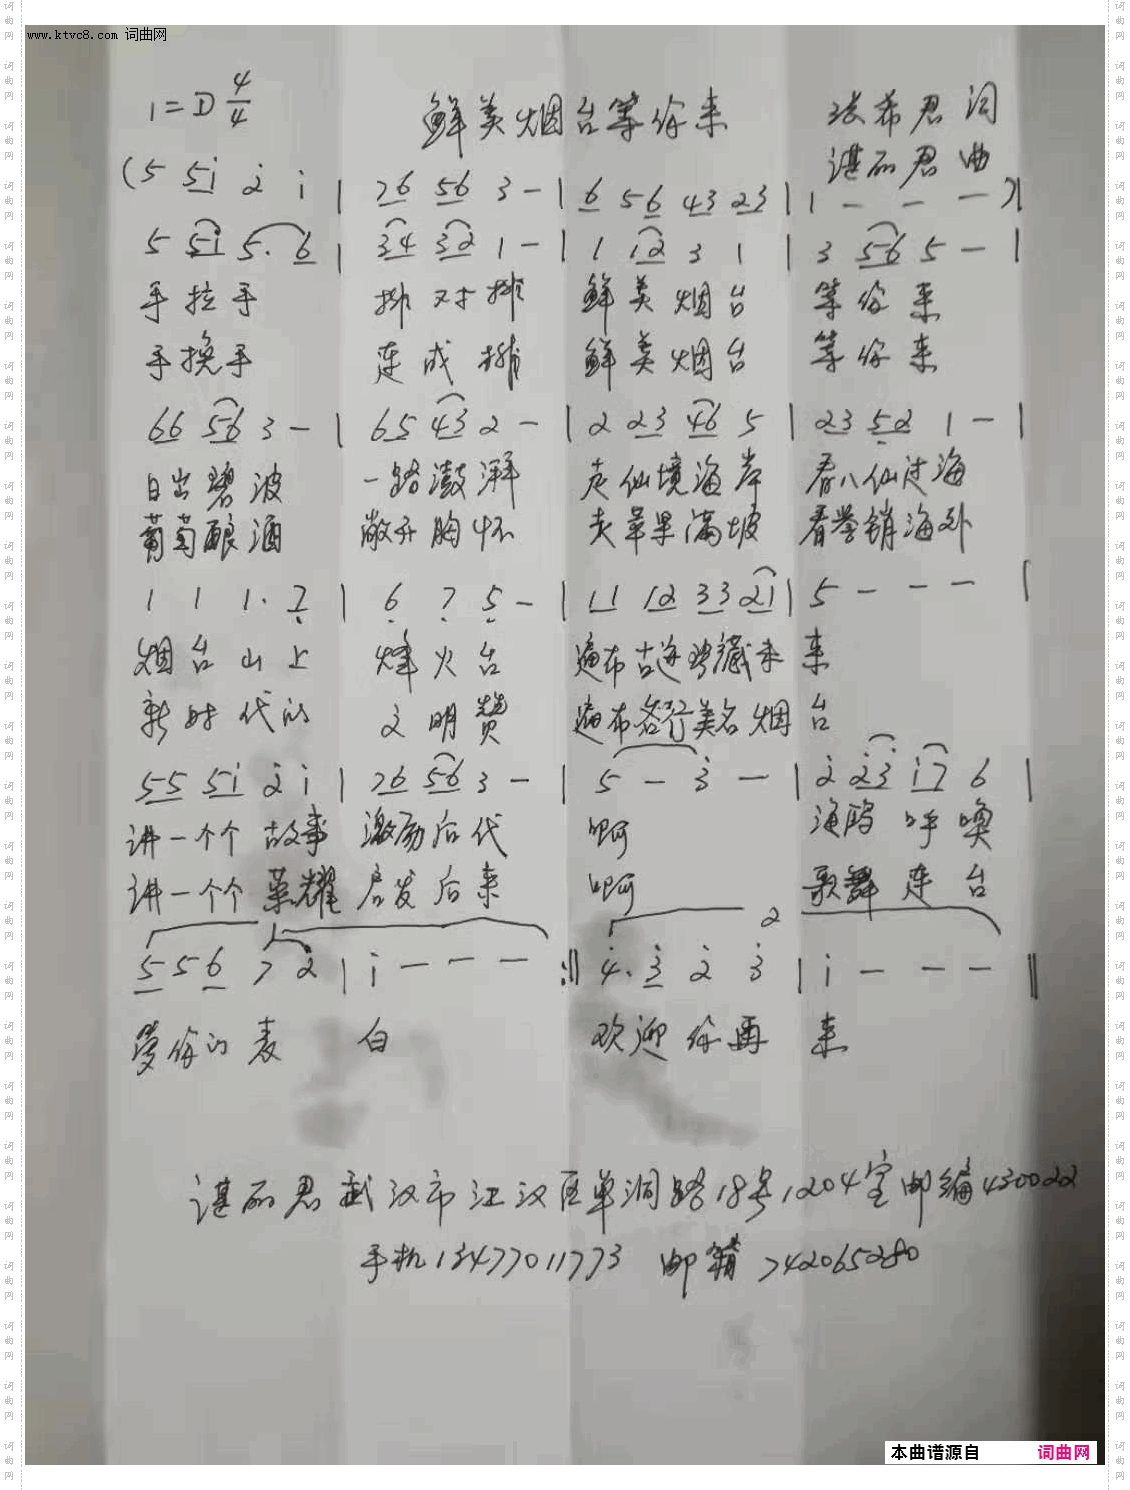 www.ktvc8.com 词曲网
1=D 4/4 鲜美烟台等你来 张希君 词
谌丽君 曲
(5 5i 2 i | 76 56 3 - | 6 56 43 23 | 1 - - - )|
5 5i 5. 6 | 34 32 1 - | 1 12 3 1 | 3 56 5 - |
手拉手 排对排 鲜美烟台 等你来
手挽手 连成排 鲜美烟台 等你来
66 56 3 - | 65 43 2 - | 2 23 46 5 | 23 52 1 - |
日出碧波 一路澎湃 走仙境海岸 看八仙过海
葡萄酿酒 敞开胸怀 夹苹果满坡 看誉销海外
1 1 1. 7 | 6 7 5 - | 11 12 33 21 | 5 - - - |
烟台山上 烽火台 遍布古迹珍藏未来
新时代的 文明赞 遍布各行美名烟台
55 5i 2 i | 76 56 3 - | 5 - 3 - | 2 23 i7 6 |
讲一个个故事 激励后代 啊 渔鸥呼唤
讲一个个荣耀 启发后来 啊 歌舞连台
1 2
5 5 6 7 2 | i - - - :‖ 4. 3 2 3 | i - - - ‖
等你的表 白 欢迎你再来
谌丽君 武汉市江汉区单洞路18号1204室邮编430022
手机13477011773 邮箱742065280
本曲谱源自 词曲网